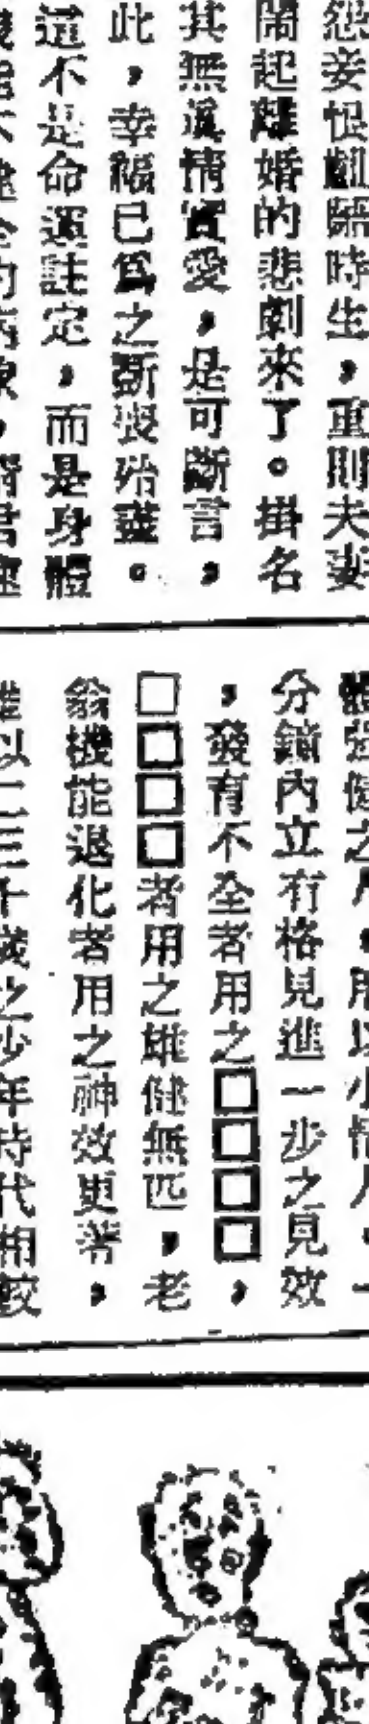 怨妾恨勃谿時生，重則夫妻
鬧起離婚的悲劇來了。掛名
其無真情實愛，是可斷言，
此，幸福已爲之斲喪殆盡。
這不是命運註定，而是身體
分鐘內立有格見進一步之見效
，發育不全者用之□□□□，
□□□□者用之雄健無匹，老
翁機能退化者用之神效更著，
以二三十歲之少年時代相較